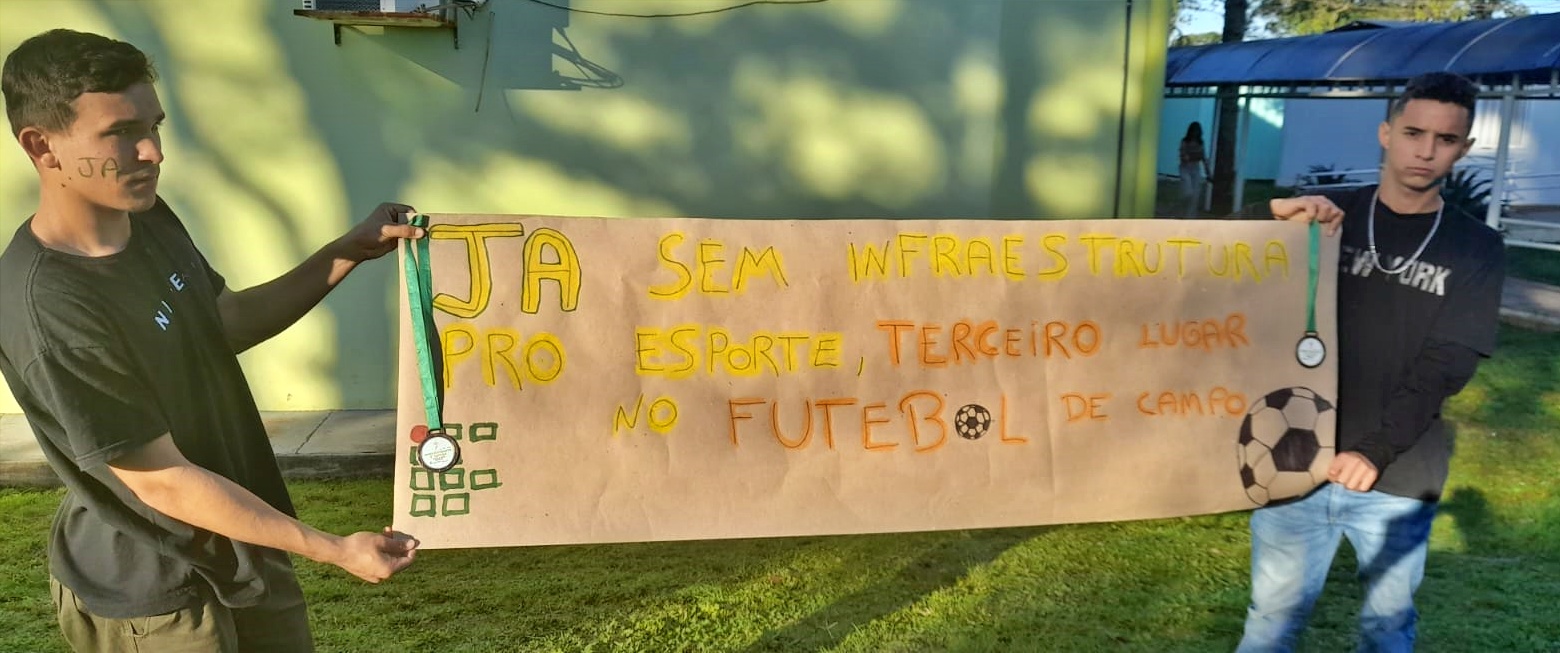 JA
NIKE
JA SEM INFRAESTRUTURA
PRO ESPORTE, TERCEIRO LUGAR
NO FUTEBOL DE CAMPO
EW YORK